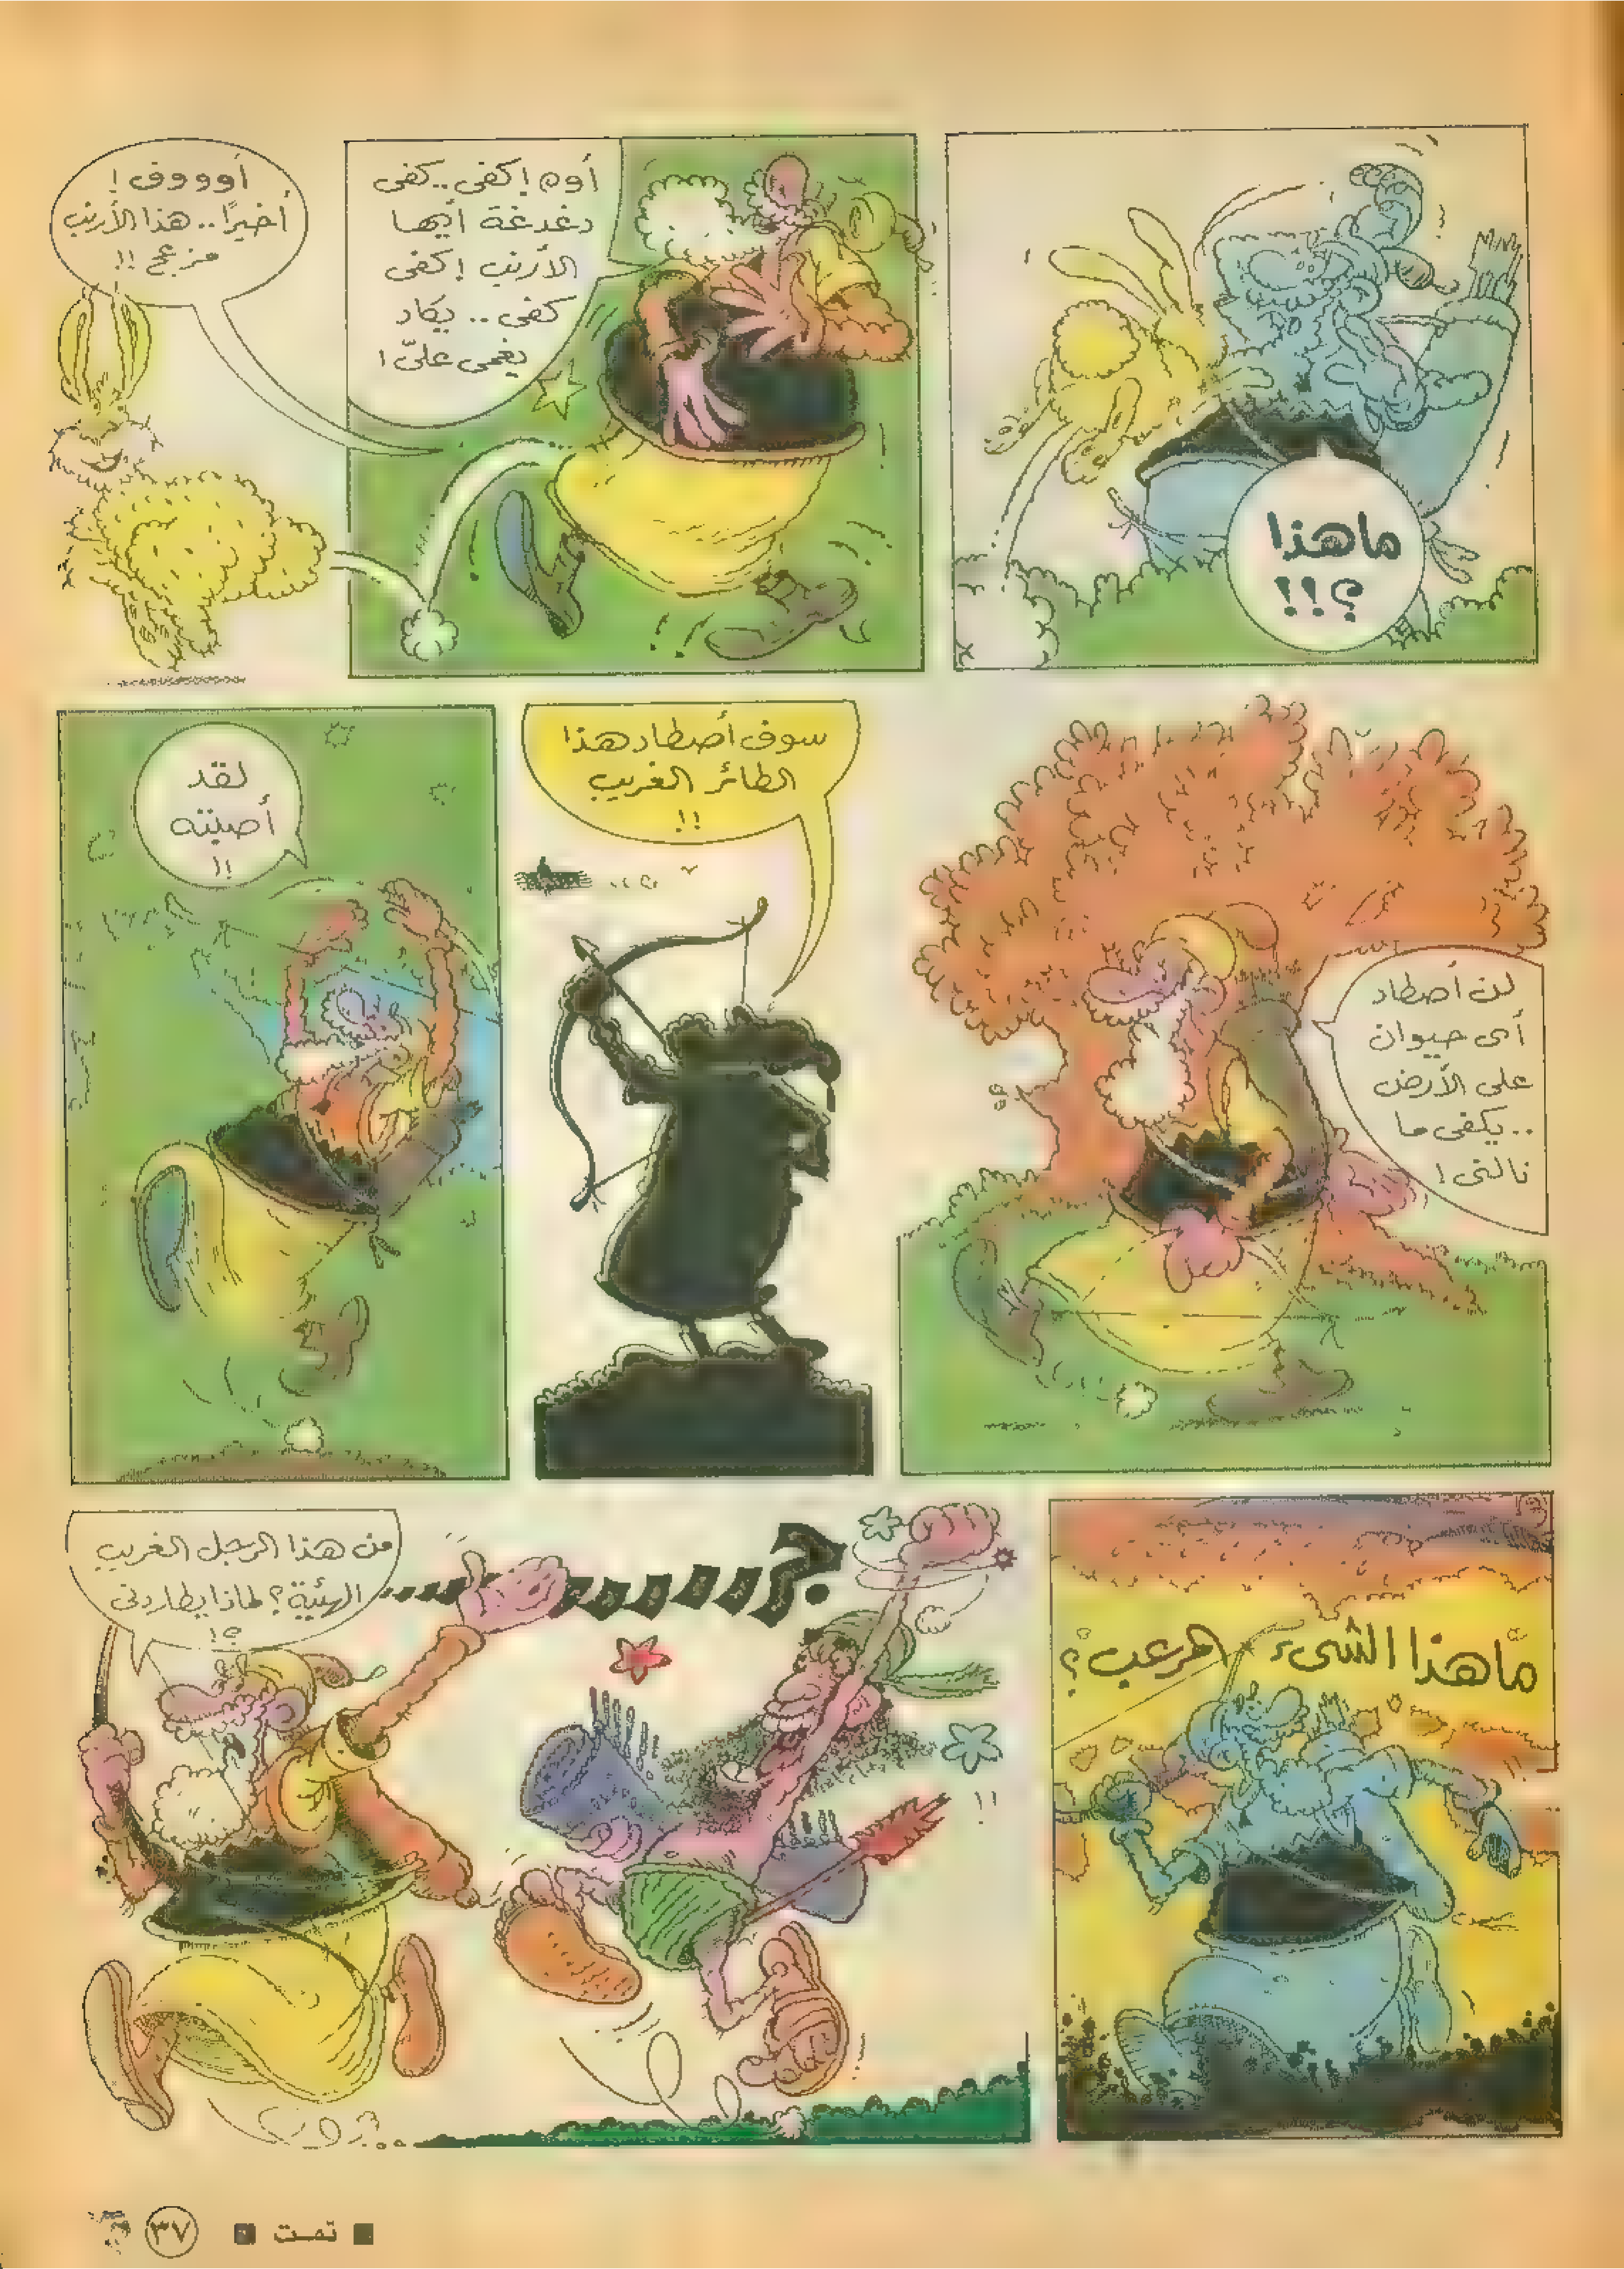 ماهذا
؟!!
أوه! كفى..كفى
دغدغة أيها
الأرنب! كفى
كفى.. يكاد
يغمى علىّ!
أوووف!
أخيرًا.. هذا الأرنب
مزعج!!
لن أصطاد
أى حيوان
على الأرض
..يكفى ما
نالنى!
سوف أصطاد هذا
الطائر الغريب
!!
لقد
أصبته
!!
ماهذا الشىء المرعب؟
من هذا الرجل الغريب
الهيئة؟ لماذا يطاردنى
؟!
!!
■ تمـت ■ ٣٧